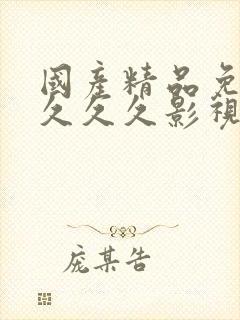 國產精品免
久久久影視
庞某告